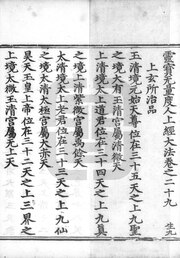 靈寶無量度人上經大法卷之二十九
生九
上玄所治品
玉清境元始天尊位在三十五天之上九聖
之境大有玉清宮屬清微天
上清境太上道君位在三十四天之上九真
之境上清紫微宮屬禹餘天
太清境太上老君位在三十三天之上九仙
之境太清太極宮屬大赤天
昊天玉皇上帝位在三十二天之上三界之
上境太微玉清宮屬無上天